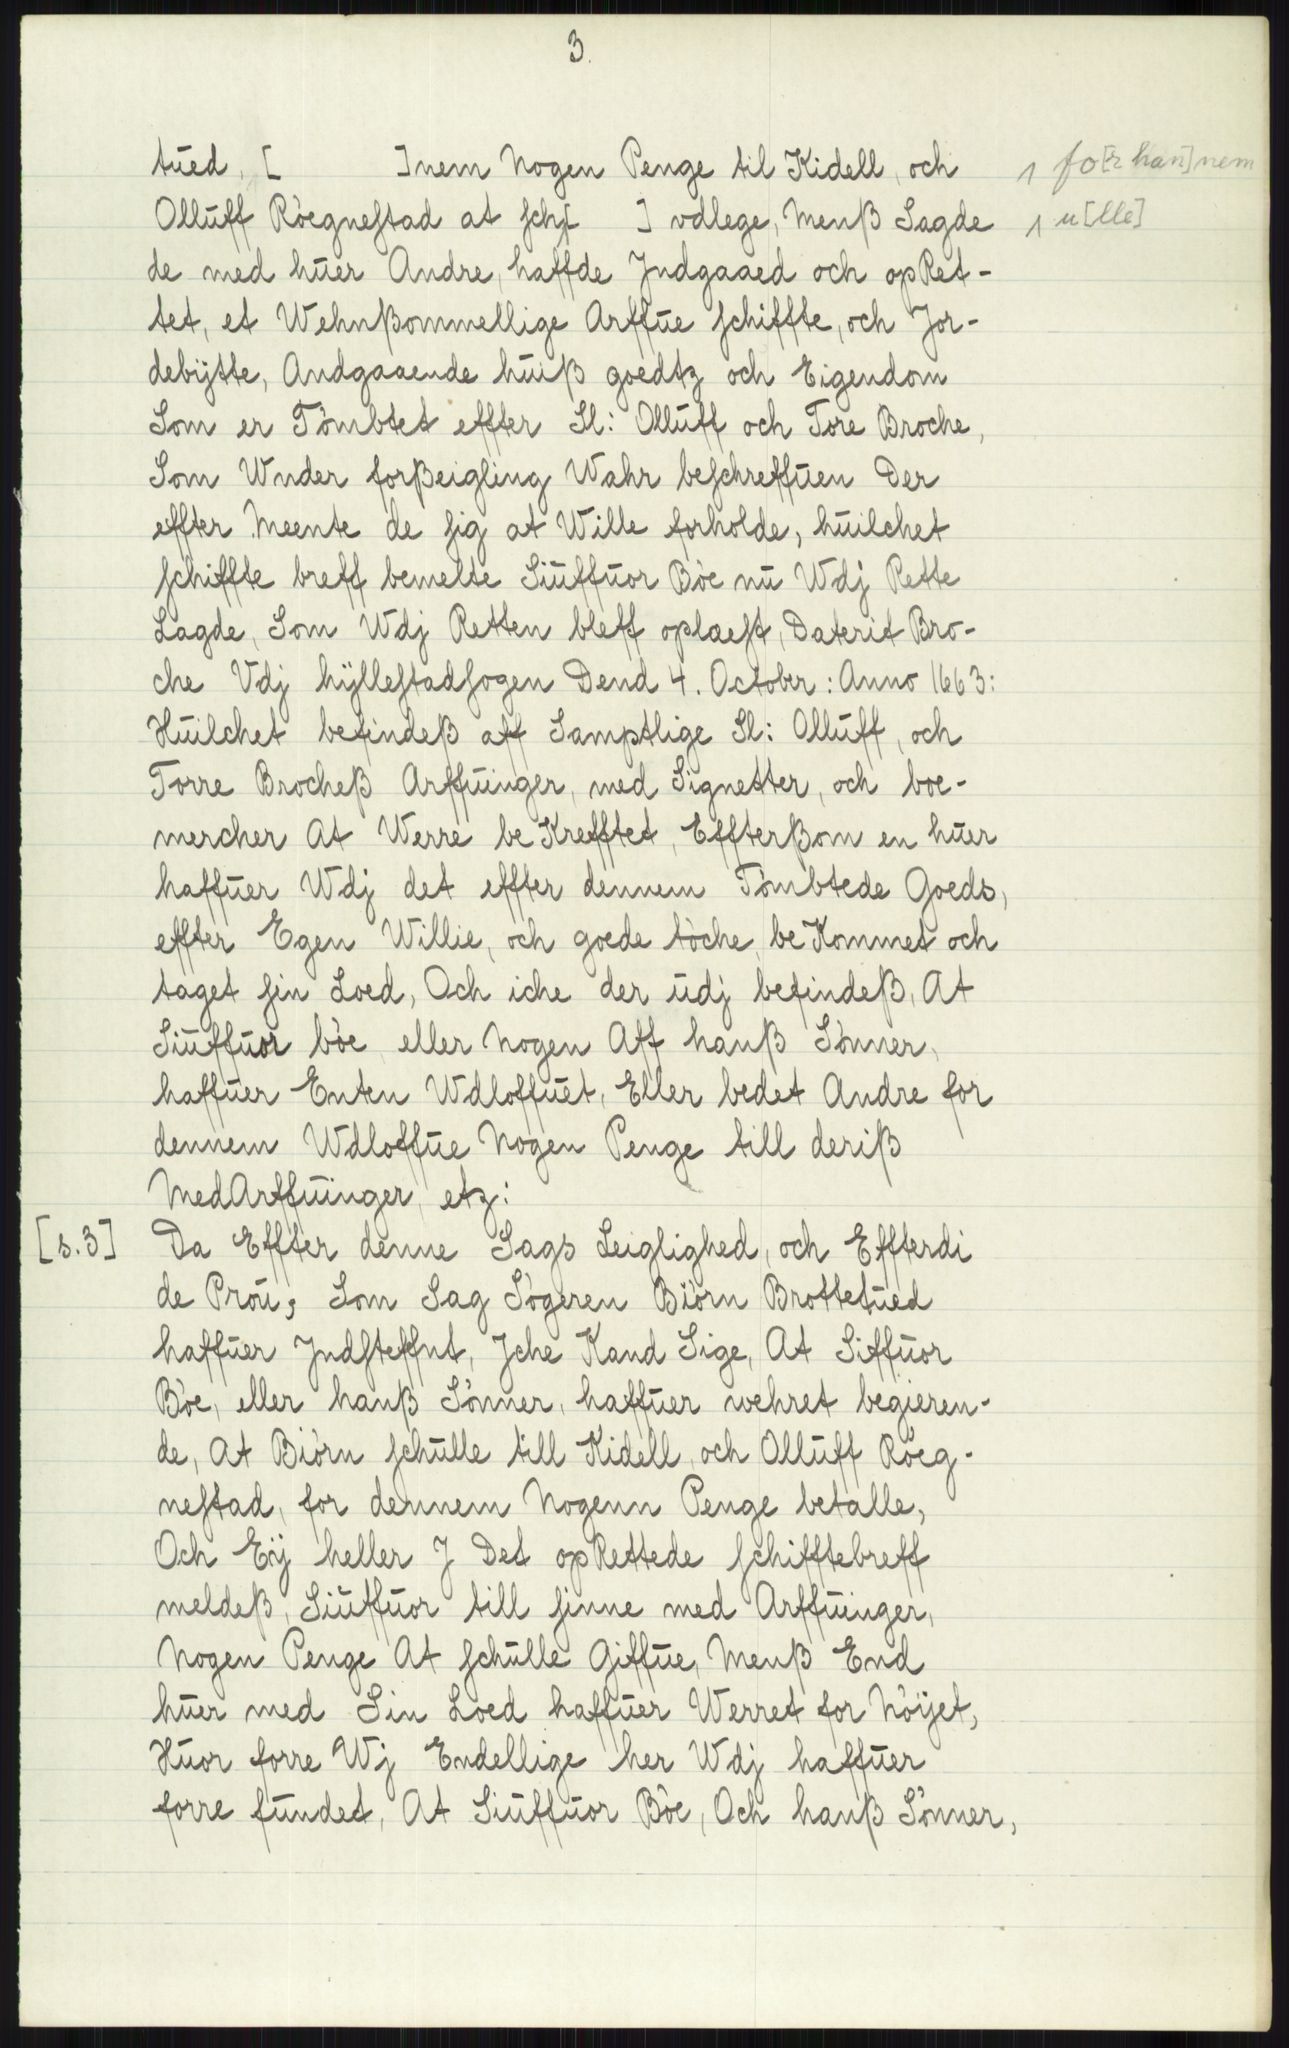 3.
tued, [ ]nem Nogen Penge til Kidell, och ˄ fo[r han]nem
Olluff Röegnestad at sch[ ] vdlege, Menß Sagde ˄ u[lle]
de med huer Andre, haffde Jndgaaed och opRet-
tet, et Wehnßommellige Arffue schiffte, och Jor-
debÿtte, Andgaaende huiß goedtz och Eigendom
Som er Tömbtet effter Sl: Olluff och Tore Broche,
Som Wnder forßeigling Wahr beschreffuen Der
effter Meente de sig at Wille forholde, huilchet
schiffte breff bemelte Siuffuor Böe nu Wdj Rette
Lagde, Som Wdj Retten bleff oplaest, Daterit Bro-
che Vdj hÿllestadsogen Dend 4. October: Anno 1663:
Huilchet befindeß aff Samptlige Sl: Olluff, och
Torre Brocheß Arffuinger, med Signetter, och boe-
mercher At Werre be Krefftet, Effterßom en huer
haffuer Wdj det effter dennem Tömbtede Goeds,
effter Egen Willie, och goede töche, be Kommet och
taget sin Loed, Och iche der udj befindeß, At
Siuffuor böe, eller Nogen Aff hanß Sönner,
haffuer Enten Wdloffuet, Eller bedet Andre for
dennem Wdloffue Nogen Penge till deriß
MedArffuinger, etz:
[s.3] Da Effter denne Sags Leiglighed, och Effterdi
de Prou, Som Sag Sögeren Biörn Brottetued
haffuer Jndsteffnt, Jche Kand Sige, At Siffuor
Böe, eller hanß Sönner, haffuer wehret begieren-
de, At Biörn schulle till Kidell, och Olluff Röeg-
nestad, for dennem Nogenn Penge betalle,
Och Eÿ heller J Det opRettede schifftebreff
meldeß, Siuffuor till sinne med Arffuinger,
Nogen Penge At schulle Giffue, Menß End
huer med Sin Loed haffuer Werret for Nöÿet,
Huor forre Wj Endellige her Wdj haffuer
forre fundet, At Siuffuor Böe, Och hanß Sönner,